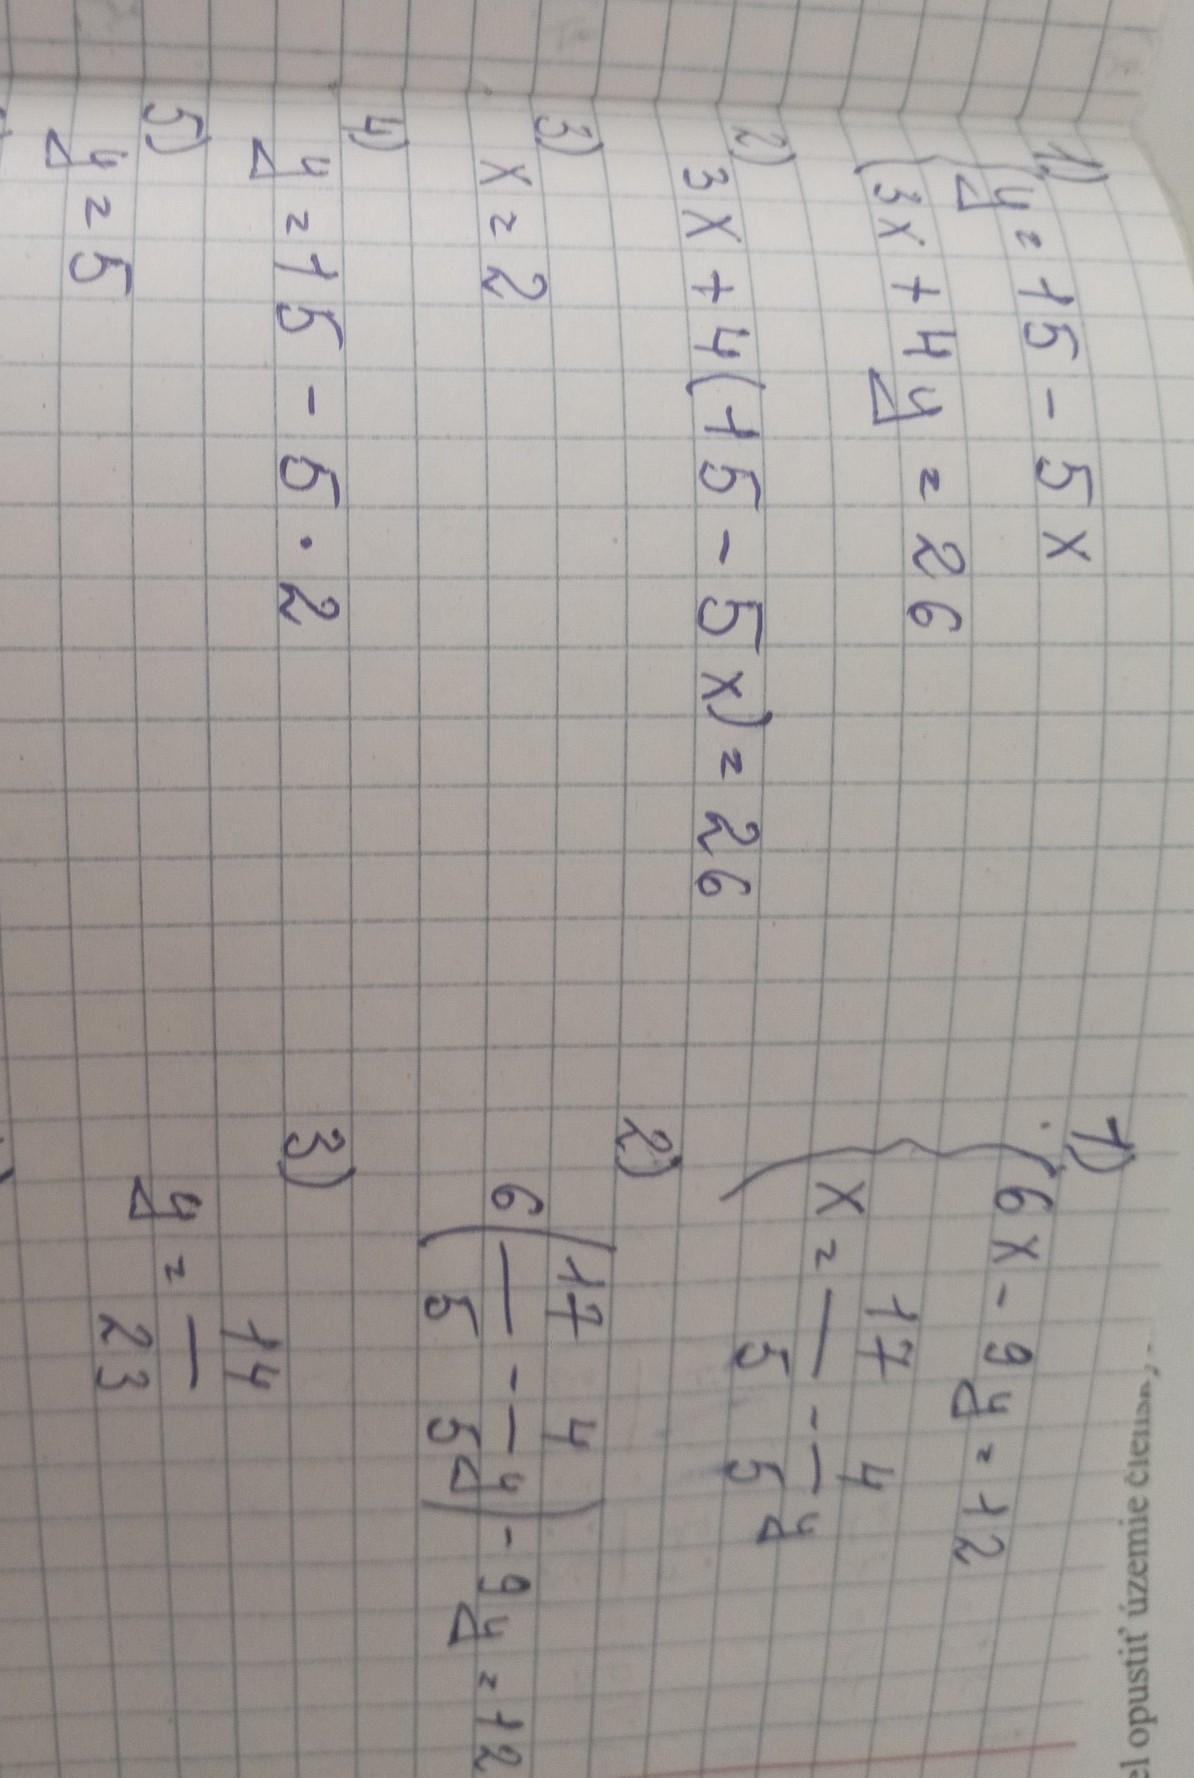 1)
y = 15 - 5x
3x + 4y = 26
2)
3x + 4(15 - 5x) = 26
3)
x = 2
4)
y = 15 - 5 · 2
5)
y = 5
1)
6x - 9y = 12
x = 17/5 - 4/5 y
2)
6(17/5 - 4/5 y) - 9y = 12
3)
y = 14/23
opustiť územie